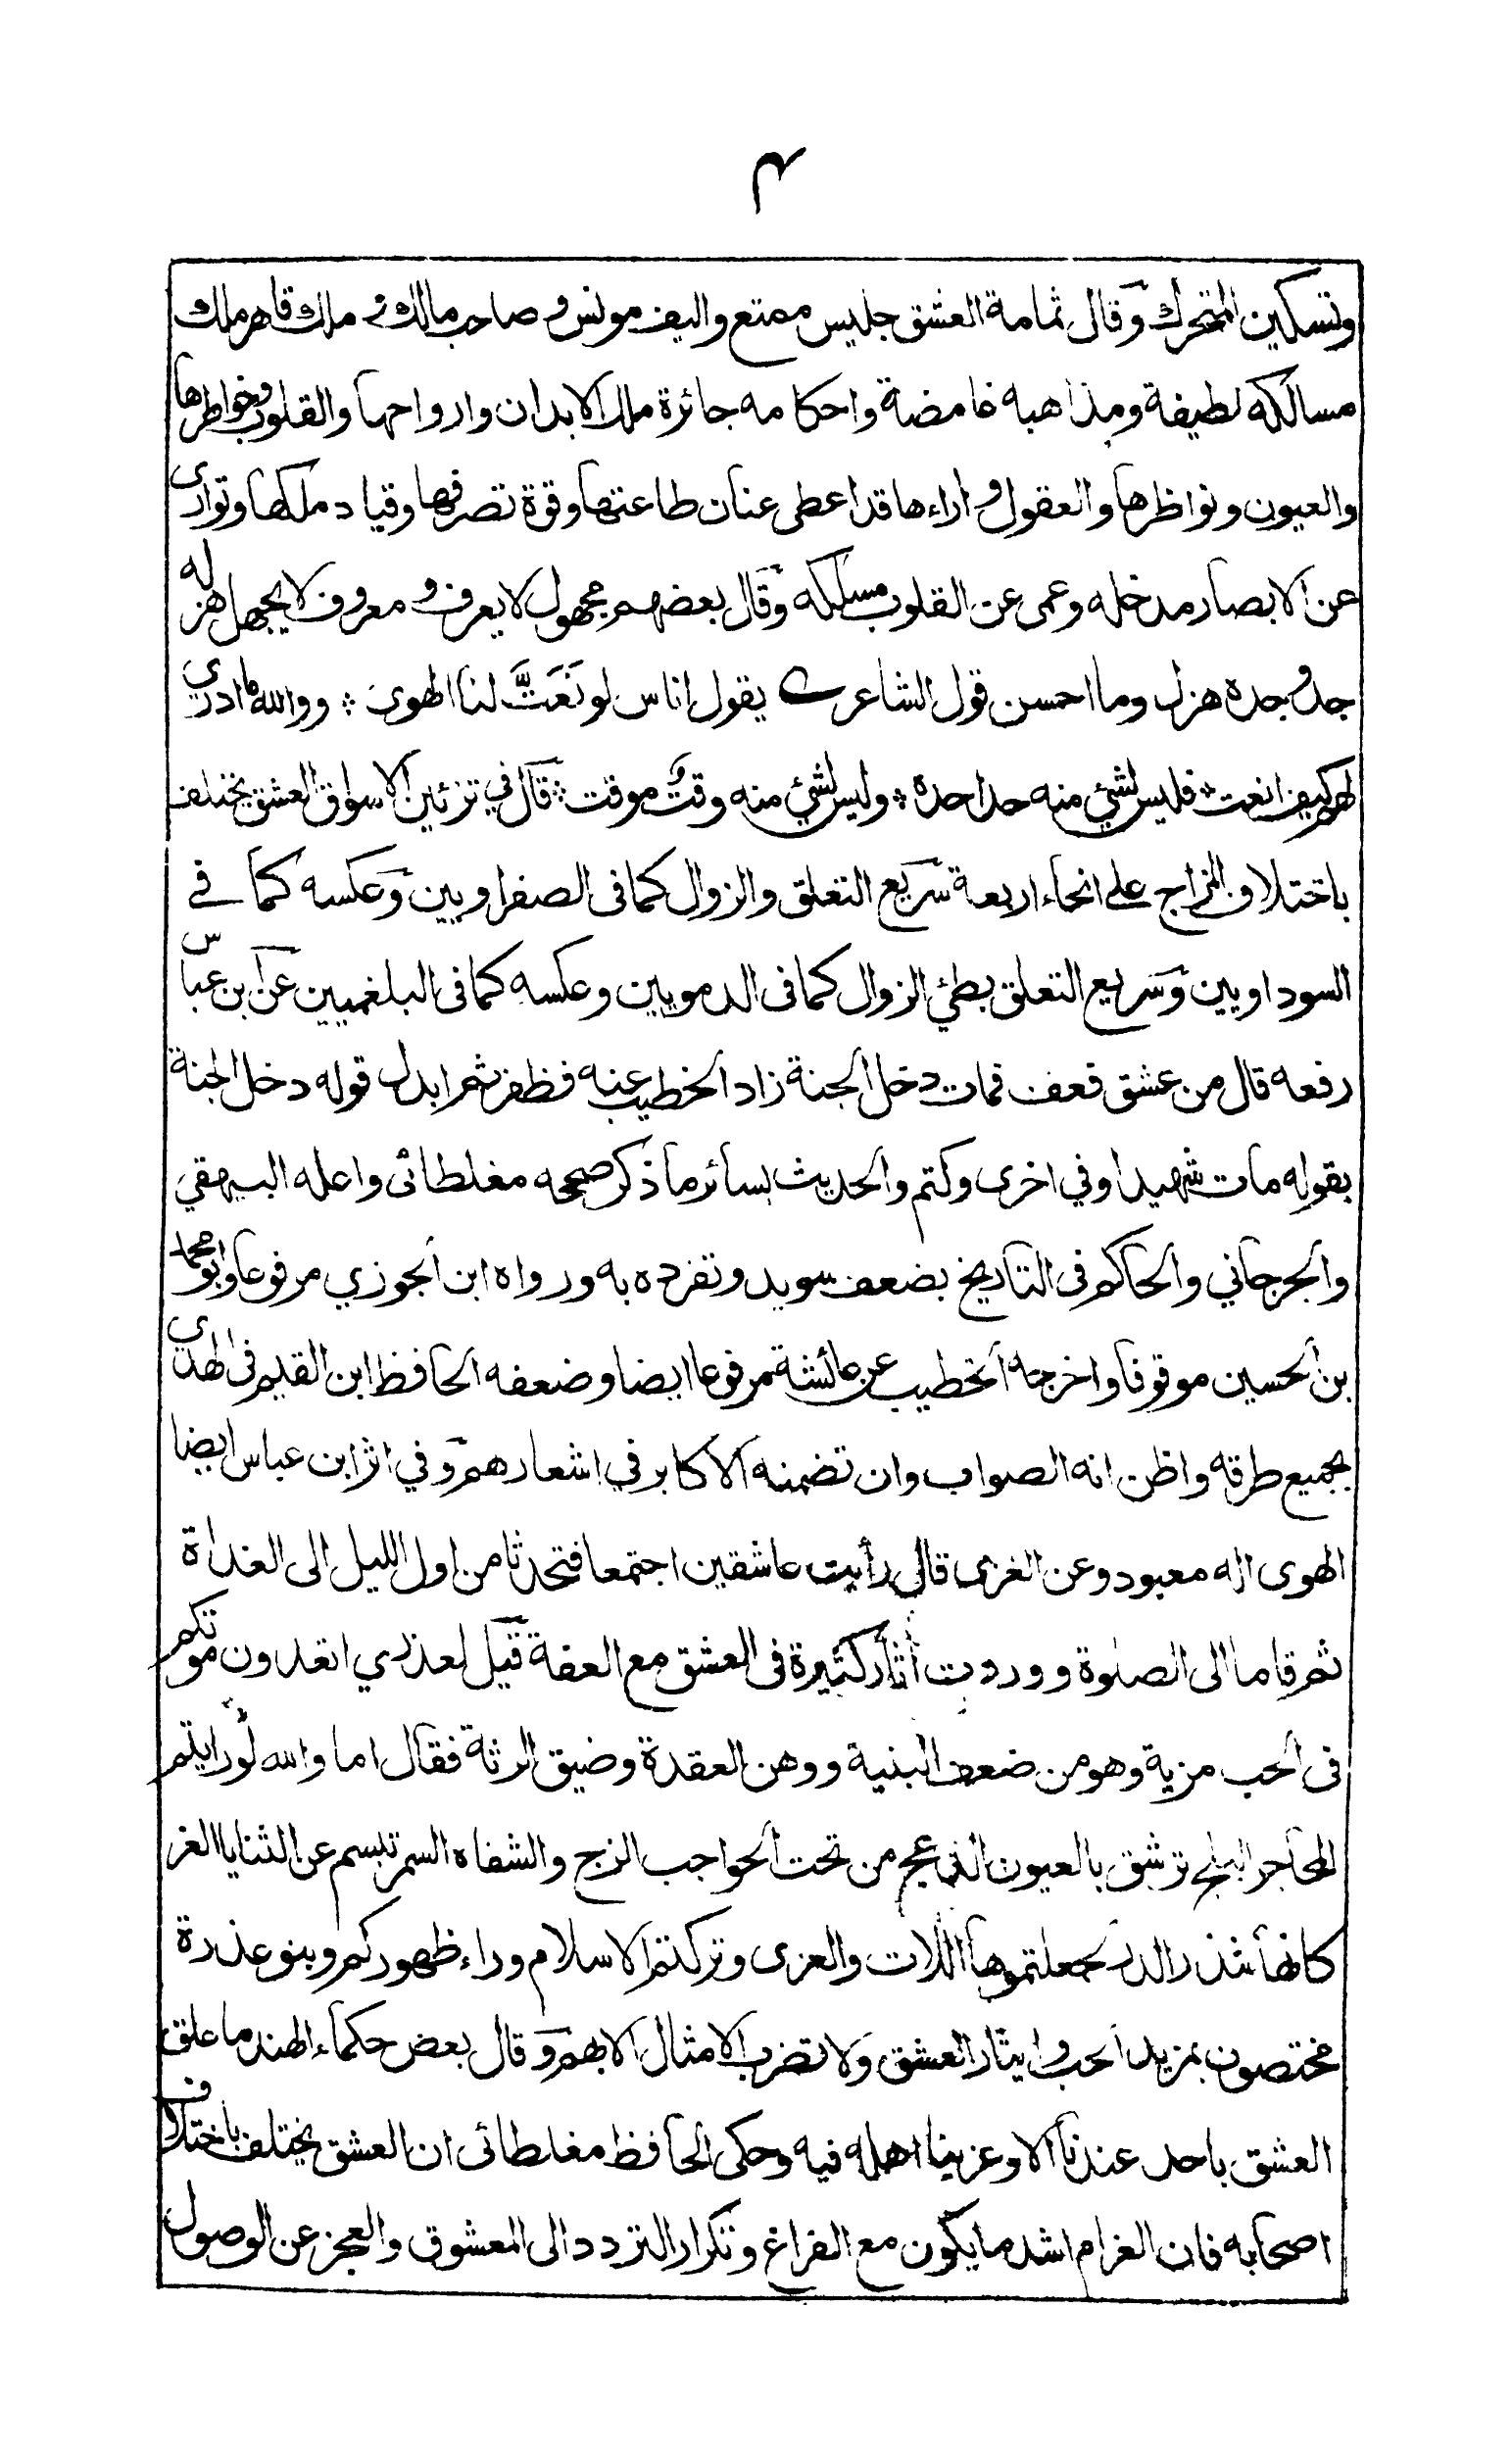 ٣
وتسكين المتحرك وقال ثمامة العشق جليس ممتع واليف مونس وصاحب مالك وملك قاهر ملك
مسالكه لطيفة ومذاهبه غامضة واحكامه جائرة ملك الابدان وارواحها والقلوب وخواطرها
والعيون ونواظرها والعقول واراءها قد اعطى عنان طاعتها وقوة تصرفها وقياد ملكها وتوارى
عن الابصار مدخله وعمى عن القلوب مسلكه وقال بعضهم مجهول لا يعرف ومعروف لا يجهل هزله
جد وجده هزل وما احسن قول الشاعر يقول اناس لو نَعَتَّ لنا الهوى ÷ ووالله ما ادري
لهم كيف انعت ÷ فليس لشئ منه حد احده ÷ وليس لشئ منه وقتٌ موقت ÷ قال في تزئين الاسواق العشق يختلف
باختلاف المزاج على انحاء اربعة سريع التعلق والزوال كما فى الصفراويين وعكسه كما في
السوداويين وسريع التعلق بطئ الزوال كما فى الدمويين وعكسه كما فى البلغميين عن ابن عباس
رفعه قال من عشق فعف فمات دخل الجنة زاد الخطيب عنه فظفر ثم ابدل قوله دخل الجنة
بقوله مات شهيدا وفي اخرى وكتم والحديث بسائر ما ذكر صححه مغلطائى واعله البيهقي
والجرجاني والحاكم فى التاريخ بضعف سويد وتفرده به ورواه ابن الجوزي مرفوعا وابو محمد
بن الحسين موقوفا واخرجه الخطيب عن عائشة مرفوعا ايضا وضعفه الحافظ ابن القيم فى الهدي
بجميع طرقه واظن انه الصواب وان تضمنه الاكابر في اشعارهم وفي اثر ابن عباس ايضا
الهوى اله معبود وعن الغزى قال رأيت عاشقين اجتمعا فتحدثا من اول الليل الى الغداة
ثم قاما الى الصلوة ووردت أثار كثيرة فى العشق مع العفة قيل لعذري اتعدون موتكم
فى الحب مزية وهو من ضعف البنية ووهن العقدة وضيق الرئة فقال اما والله لو رايتم
المحاجر البلج ترشق بالعيون الدعج من تحت الحواجب الزج والشفاه السمر تبسم عن الثنايا الغر
كانها شذر الدر لجعلتموها اللات والعزى وتركتم الاسلام وراء ظهوركم وبنو عذرة
مختصون بمزيد الحب وايثار العشق ولا تضرب الامثال الا بهم وقال بعض حكماء الهند ما علق
العشق باحد عندنا الا وعزينا اهله فيه وحكى الحافظ مغلطائى ان العشق يختلف باختلاف
اصحابه فان الغرام اشد ما يكون مع الفراغ وتكرار التردد الى المعشوق والعجز عن الوصول